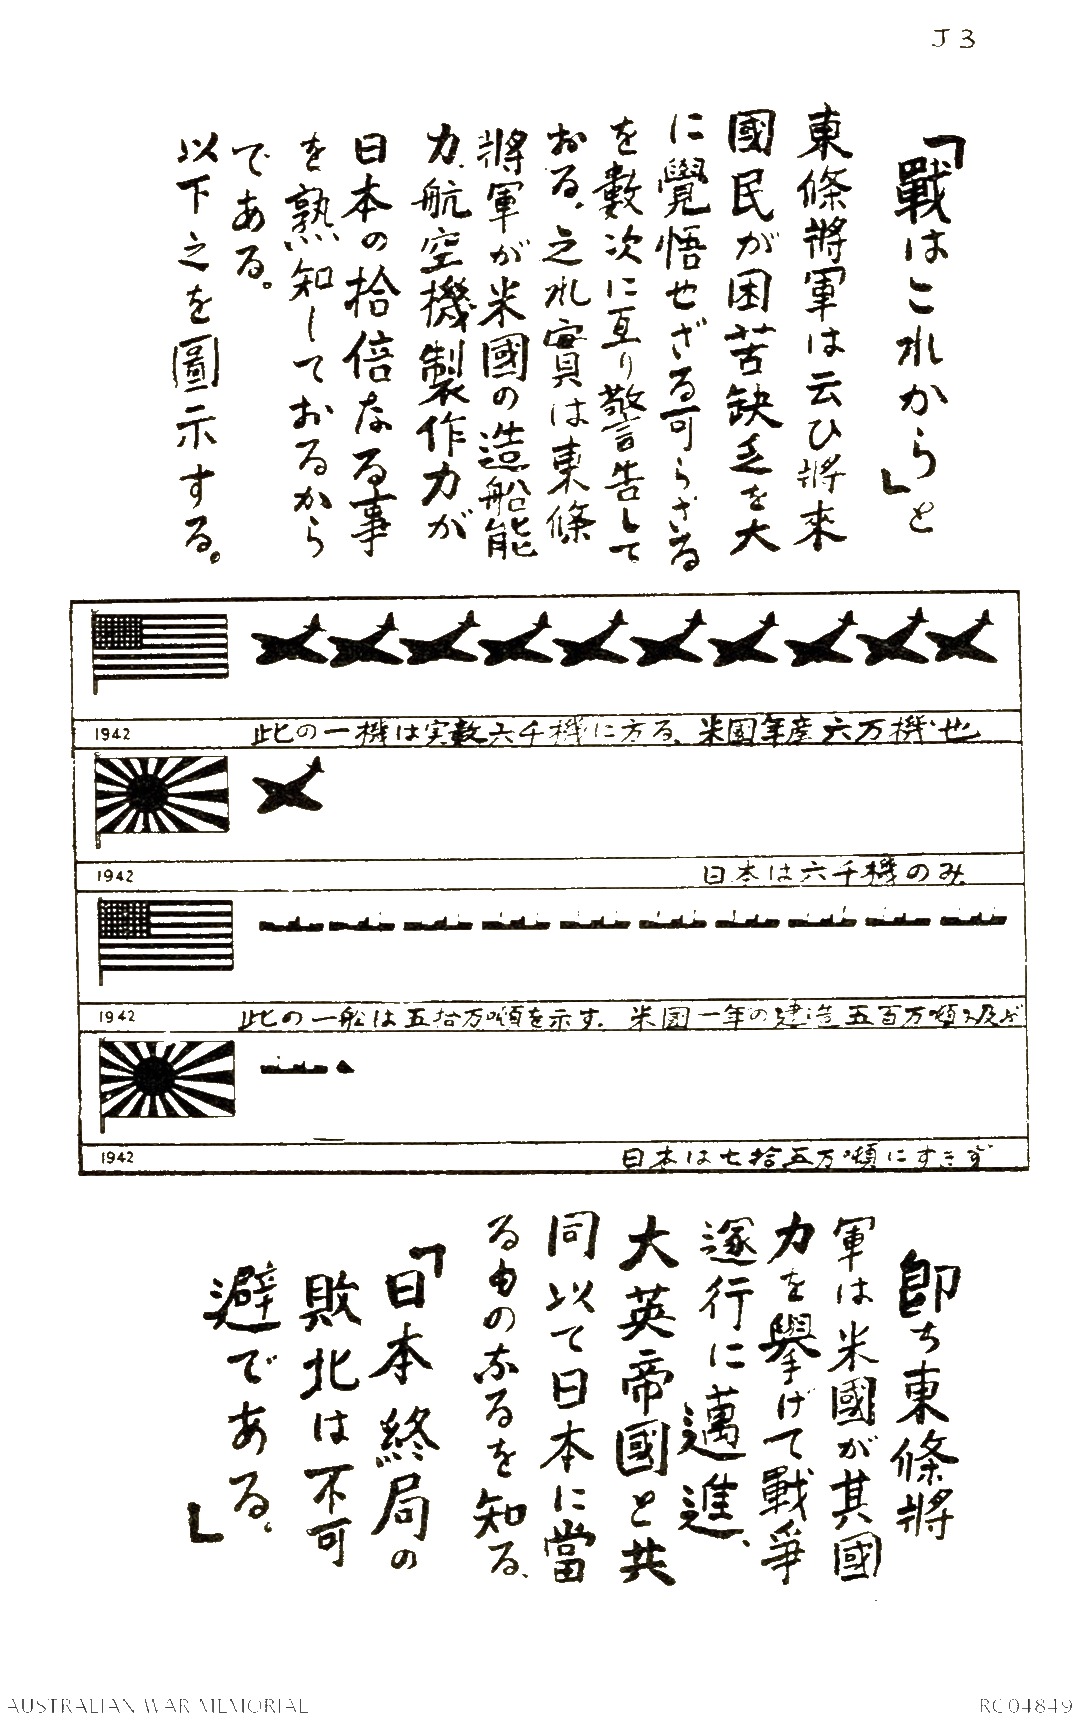 J3
「戰はこれからと」
東條將軍は云ひ將來
國民が困苦缺乏を大
に覺悟せざる可らざる
を數次に亙り警告して
おる、之れ實は東條
將軍が米國の造船能
力、航空機製作力が
日本の拾倍なる事
を熟知しておるから
である。
以下之を圖示する。
1942
此の一機は実数六千機に方る、米国年産六万機也
1942
日本は六千機のみ
1942
此の一船は五拾万噸を示す、米國一年の建造五百万噸に及ぶ
1942
日本は七拾五万噸にすぎず
卽ち東條將
軍は米國が其國
力を擧げて戰爭
遂行に邁進、
大英帝國と共
同以て日本に當
る由のなるを知る、
「日本終局の
敗北は不可
避である。」
AUSTRALIAN WAR MEMORIAL
RC04849